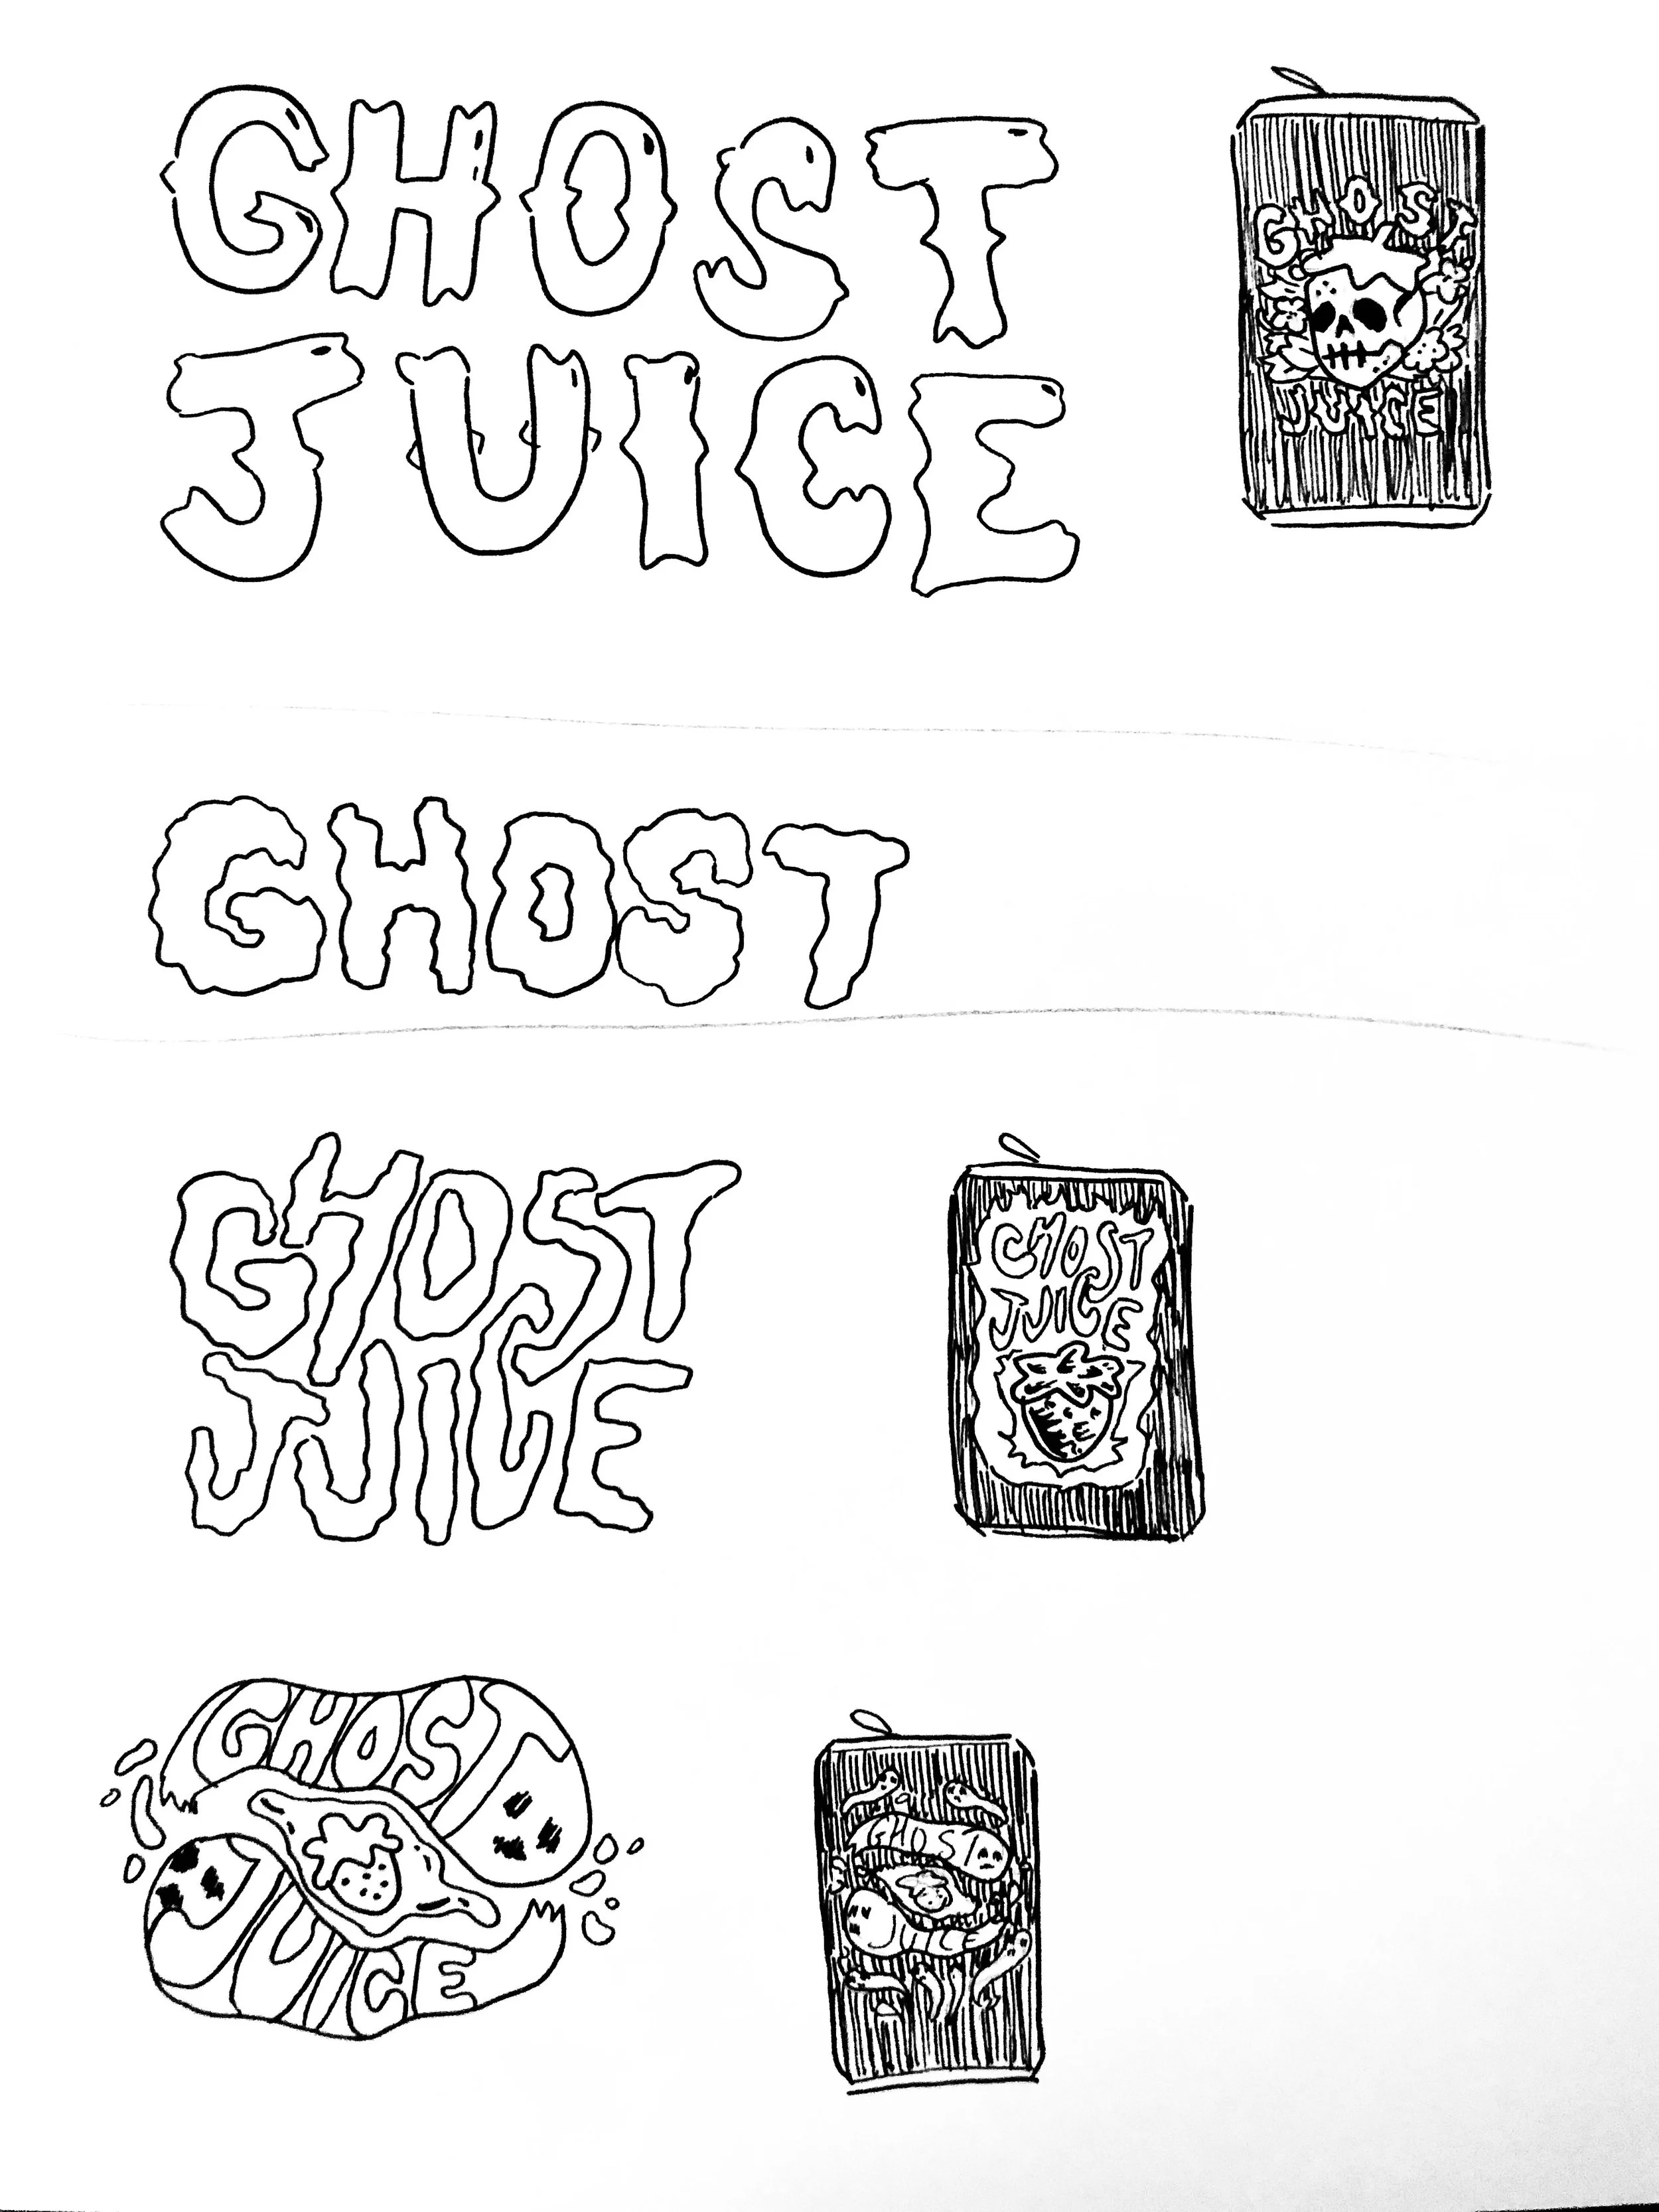 GHOST
JUICE
GHOST
JUICE
GHOST
GHOST
JUICE
GHOST
JUICE
GHOST
JUICE
GHOST
JUICE